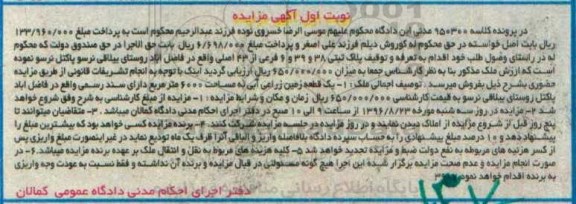 نوبت اول آگهی مزایده
در پرونده کلاسه ۹۵۰۳۰۰ مدنی این دادگاه محکوم علیهم موسی الرضا خسروی توده فرزند عبدالرحیم محکوم است به پرداخت مبلغ ۱۳۳/۹۶۰/۰۰۰
ریال بابت اصل خواسته در حق محکوم له کوروش دیلم فرزند علی اصغر و پرداخت مبلغ ۶/۶۹۸/۰۰۰ ریال بابت حق الاجرا در حق صندوق دولت که محکوم
له در راستای وصول طلب خود اقدام به تعرفه و توقیف پلاک ثبتی ۳۸ و ۳۹ و ۶ فرعی از ۴۳ اصلی واقع در فاضل آباد روستای بیلاقی نرسو پاکتل نرسو نموده
است که ارزش ملک مذکور بنا به نظر کارشناس جمعا به میزان ۶۵۰/۰۰۰/۰۰۰ ریال ارزیابی گردید اینک با توجه به انجام تشریفات قانونی از طریق مزایده
حضوری بشرح ذیل بفروش میرسد: توصیف اجمالی ملک: ۱- یک قطعه زمین زراعی آبی به مساحت ۶۰۰۰ متر مربع دارای سند رسمی واقع در فاضل آباد
پاکتل روستای بیلاقی نرسو به قیمت کارشناسی ۶۵۰/۰۰۰/۰۰۰ ریال زمان و مکان و شرایط مزایده: ۱- مزایده از مبلغ کارشناسی به شرح وفق شروع خواهد
شد ۲- مزایده در روز سه شنبه مورخه ۱۳۹۶/۸/۲۳ از ساعت ۱۰ الی ۱۱ صبح در دفتر اجرای احکام مدنی دادگاه کمالان میباشد. ۳- متقاضیان میتوانند تا
پنج روز قبل از شروع مزایده از املاک دیدن نمایند و در روز مزایده در جلسه مزایده شرکت کنند ۴- برنده مزایده کسی خواهد بود که بیشترین مبلغ را
پیشنهاد دهد و ۱۰ درصد مبلغ پیشنهادی را به حساب سپرده دادگاه بلافاصله واریز و الباقی آنرا ظرف یک ماه تودیع نماید در غیر اینصورت مبلغ واریزی پس
از کسر هزینه های مربوطه به نفع دولت ضبط و مزایده تجدید خواهد شد ۵- کلیه هزینه های مربوط به نقل و انتقال ملک بر عهده برنده مزایده میباشد. ۶- در
صورت انجام مزایده و عدم صحت مزایده برگزار شده این اجرا هیچ گونه مسئولتی در قبال مزایده و برنده آن نداشته و فقط نسبت به عودت وجه واریزی
به برنده اقدام خواهد نمود
دفتر اجرای احکام مدنی دادگاه عمومی کمالان